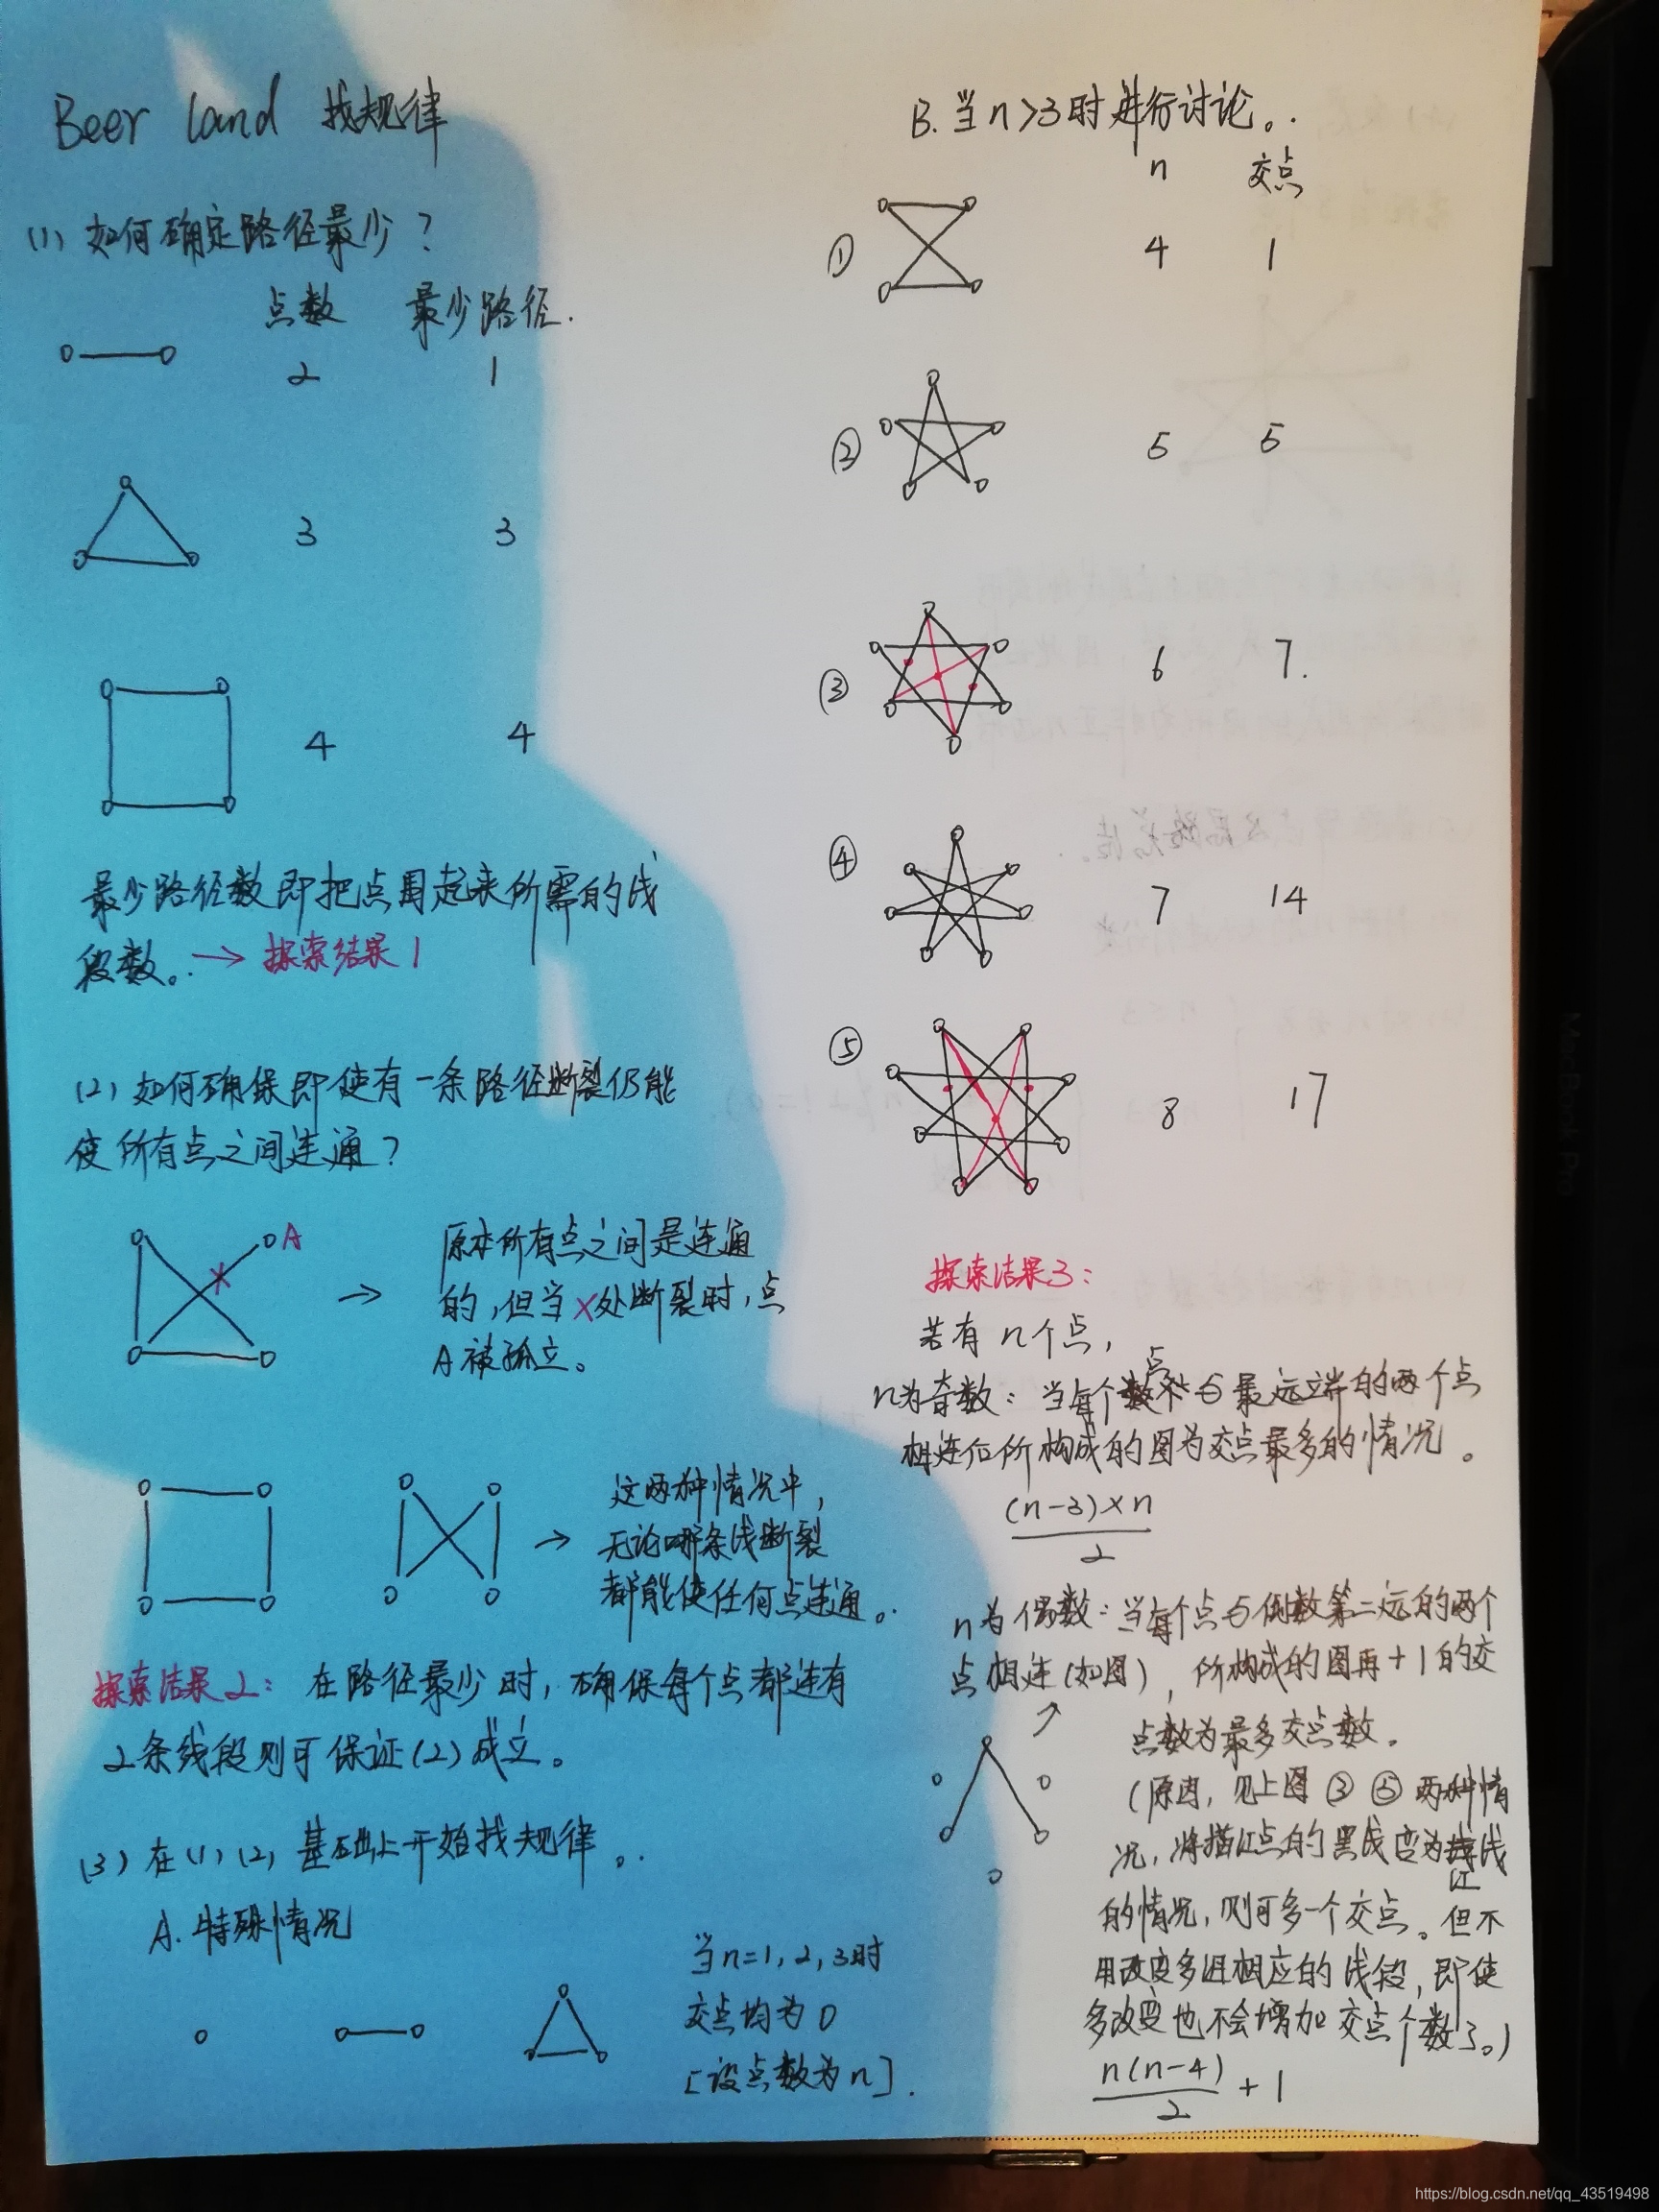 Beer land 找规律
(1) 如何确定路径最少？
点数 最少路径.
2 1
3 3
4 4
最少路径数即把点围起来所需的线
段数。→ 探索结果1
(2) 如何确保即使有一条路径断裂仍能
使所有点之间连通？
A
X
→
原本所有点之间是连通
的，但当X处断裂时，点
A被孤立。
→
这两种情况中，
无论哪条线断裂
都能使任何点连通。
探索结果2：在路径最少时，确保每个点都连有
2条线段则可保证(2)成立。
(3) 在(1)(2)基础上开始找规律。
A. 特殊情况
当n=1, 2, 3时
交点均为0
[设点数为n].
B. 当n>3时进行讨论。
n 交点
① 4 1
② 5 5
③ 6 7.
④ 7 14
⑤ 8 17
探索结果3：
若有n个点，
n为奇数：当每个点与最远端的两个点
相连后所构成的图为交点最多的情况。
(n-3)×n
2
n为偶数：当每个点与倒数第二远的两个
点相连(如图)，所构成的图再+1的交
点数为最多交点数。
(原因，见上图③⑤两种情
况，将描红点的黑线变为红线
的情况，则可多一个交点。但不
用改变多组相应的线段，即使
多改变也不会增加交点个数了。)
n(n-4)
2 + 1
MacBook Pro
https://blog.csdn.net/qq_43519498